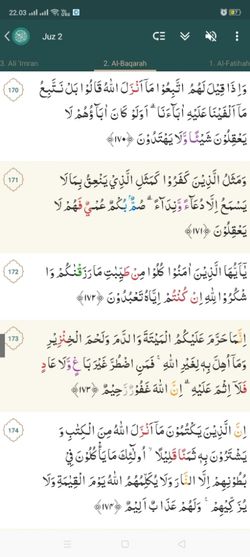 22.03
Juz 2
3. Ali 'Imran
2. Al-Baqarah
1. Al-Fatihah
170
وَاِذَا قِيْلَ لَهُمُ اتَّبِعُوْا مَآ اَنْزَلَ اللّٰهُ قَالُوْا بَلْ نَتَّبِعُ
مَآ اَلْفَيْنَا عَلَيْهِ اٰبَاۤءَنَا ۗ اَوَلَوْ كَانَ اٰبَاۤؤُهُمْ لَا
يَعْقِلُوْنَ شَيْـًٔا وَّلَا يَهْتَدُوْنَ ﴿١٧٠﴾
171
وَمَثَلُ الَّذِيْنَ كَفَرُوْا كَمَثَلِ الَّذِيْ يَنْعِقُ بِمَا لَا
يَسْمَعُ اِلَّا دُعَاۤءً وَّنِدَاۤءً ۗ صُمٌّ ۢ بُكْمٌ عُمْيٌ فَهُمْ لَا
يَعْقِلُوْنَ ﴿١٧١﴾
172
يٰٓاَيُّهَا الَّذِيْنَ اٰمَنُوْا كُلُوْا مِنْ طَيِّبٰتِ مَا رَزَقْنٰكُمْ وَا
شْكُرُوْا لِلّٰهِ اِنْ كُنْتُمْ اِيَّاهُ تَعْبُدُوْنَ ﴿١٧٢﴾
173
اِنَّمَا حَرَّمَ عَلَيْكُمُ الْمَيْتَةَ وَالدَّمَ وَلَحْمَ الْخِنْزِيْرِ
وَمَآ اُهِلَّ بِهٖ لِغَيْرِ اللّٰهِ ۚ فَمَنِ اضْطُرَّ غَيْرَ بَاغٍ وَّلَا عَادٍ
فَلَآ اِثْمَ عَلَيْهِ ۗ اِنَّ اللّٰهَ غَفُوْرٌ رَّحِيْمٌ ﴿١٧٣﴾
174
اِنَّ الَّذِيْنَ يَكْتُمُوْنَ مَآ اَنْزَلَ اللّٰهُ مِنَ الْكِتٰبِ وَ
يَشْتَرُوْنَ بِهٖ ثَمَنًا قَلِيْلًا ۙ اُولٰۤىِٕكَ مَا يَأْكُلُوْنَ فِيْ
بُطُوْنِهِمْ اِلَّا النَّارَ وَلَا يُكَلِّمُهُمُ اللّٰهُ يَوْمَ الْقِيٰمَةِ وَلَا
يُزَكِّيْهِمْ ۚ وَلَهُمْ عَذَابٌ اَلِيْمٌ ﴿١٧٤﴾